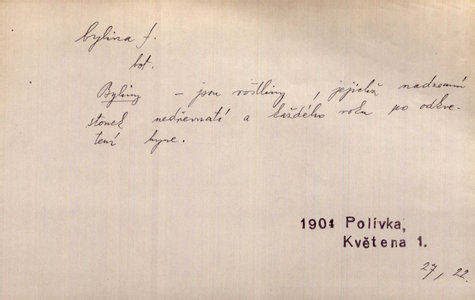 bylina f.
bot.
Byliny – jsou rostliny, jejichž nadzemní
stonek nedřevnatí a každého roku po odkve-
tení hyne.
1901 Polívka,
Květena 1.
27, 22.